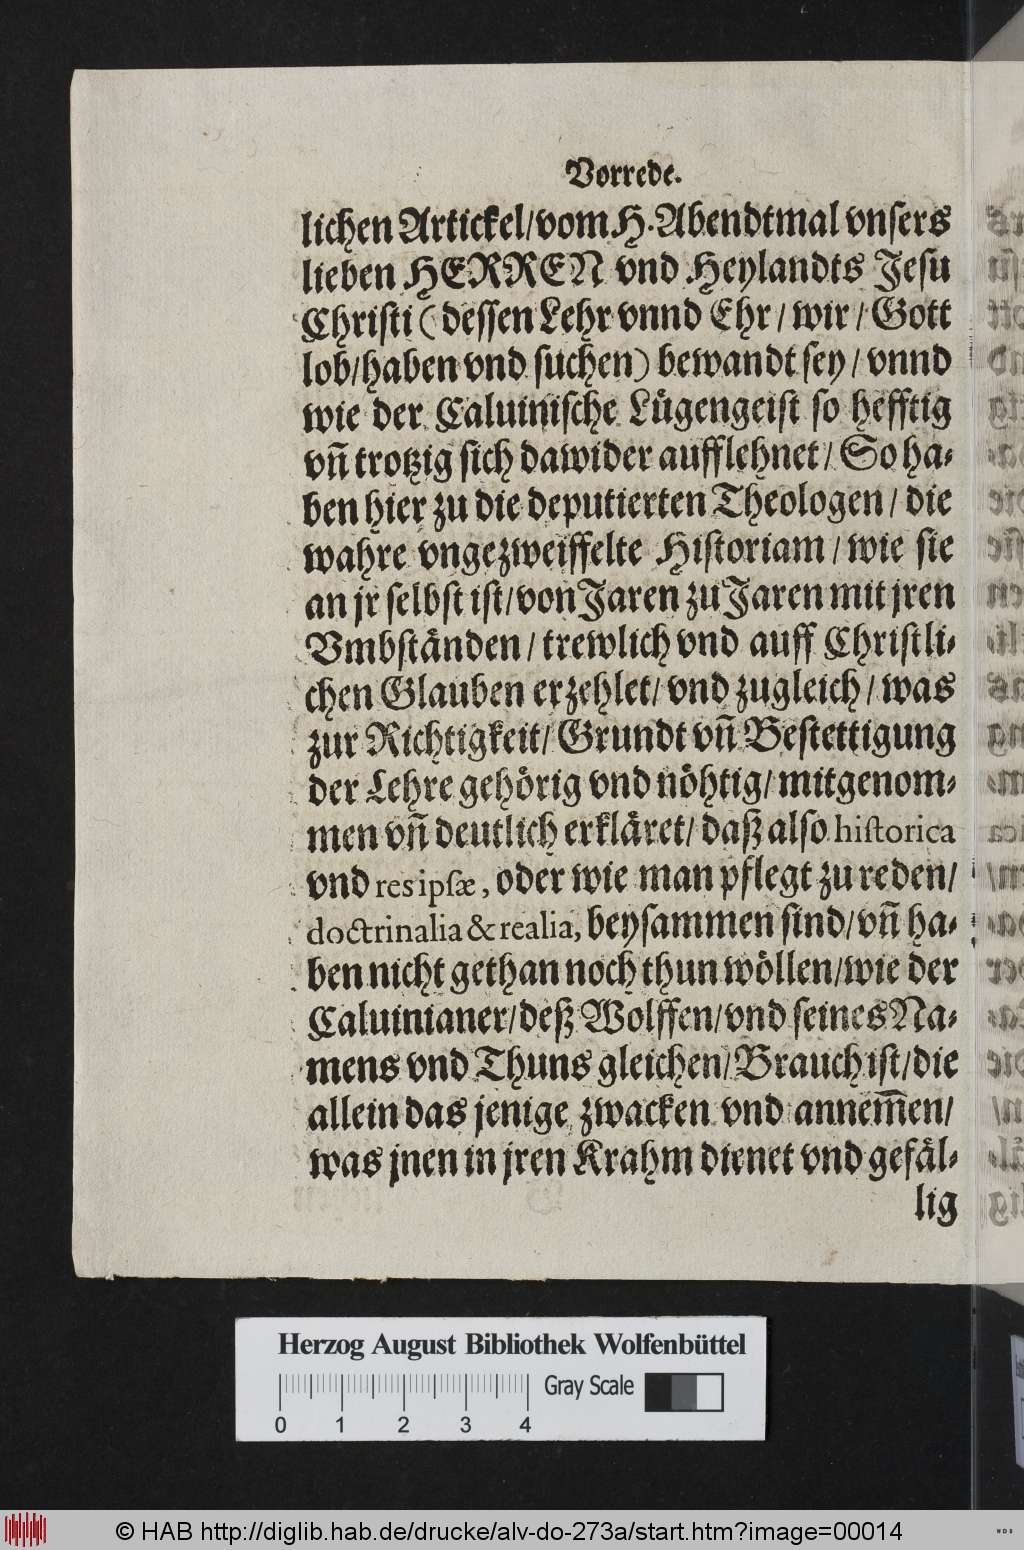 Vorrede.
lichen Artickel/vom H. Abendtmal vnsers
lieben HERREN vnd Heylandts Jesu
Christi (dessen Lehr vnnd Ehr/ wir/ Gott
lob/haben vnd suchen) bewandt sey/ vnnd
wie der Caluinische Lügengeist so hefftig
vñ trotzig sich dawider aufflehnet/ So ha-
ben hier zu die deputierten Theologen/ die
wahre vngezweiffelte Historiam/ wie sie
an jr selbst ist/von Jaren zu Jaren mit jren
Vmbständen/ trewlich vnd auff Christli-
chen Glauben erzehlet/ vnd zugleich/ was
zur Richtigkeit/ Grundt vñ Bestettigung
der Lehre gehörig vnd nöhtig/ mitgenom-
men vñ deutlich erkläret/ daß also historica
vnd res ipsæ, oder wie man pflegt zu reden/
doctrinalia & realia, beysammen sind/ vñ ha-
ben nicht gethan noch thun wöllen/wie der
Caluinianer/deß Wolffen/vnd seines Na-
mens vnd Thuns gleichen/ Brauch ist/die
allein das jenige zwacken vnd annem̃en/
was jnen in jren Krahm dienet vnd gefäl-
lig
Herzog August Bibliothek Wolfenbüttel
Gray Scale
0 1 2 3 4
© HAB http://diglib.hab.de/drucke/alv-do-273a/start.htm?image=00014